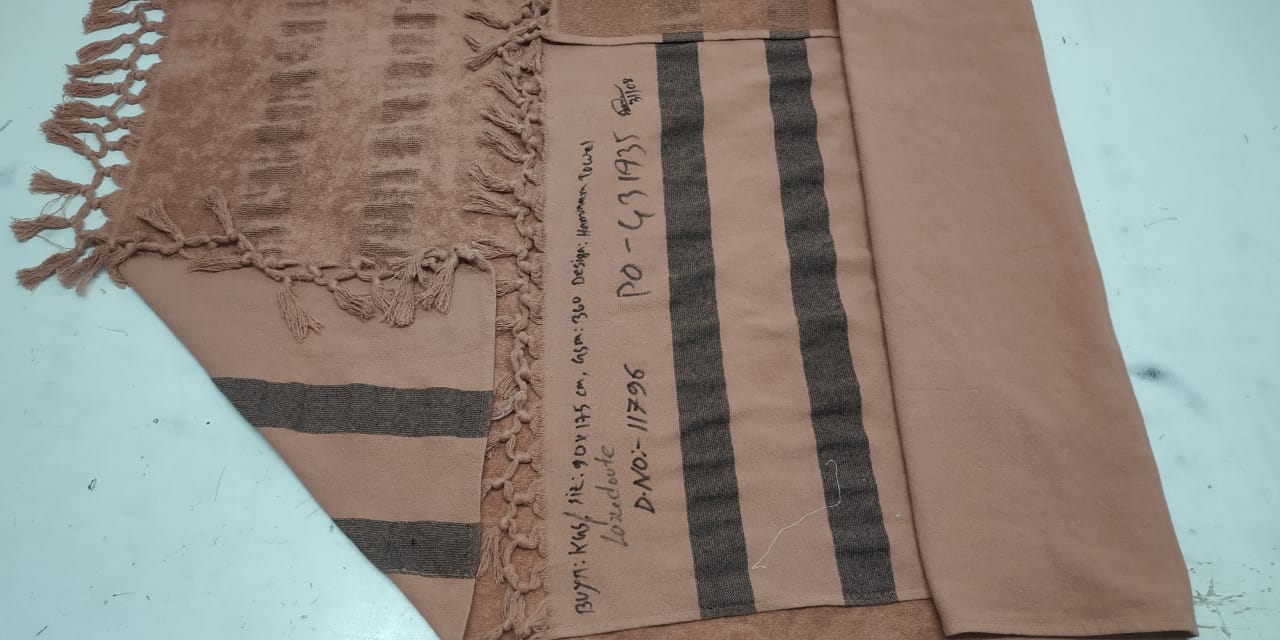 Buyr: KGS/ Siz: 90x175 cm, GSM: 360 Design: Hammam Towel
Laredoute
D.NO:- 11796 PO - G31935
31/08